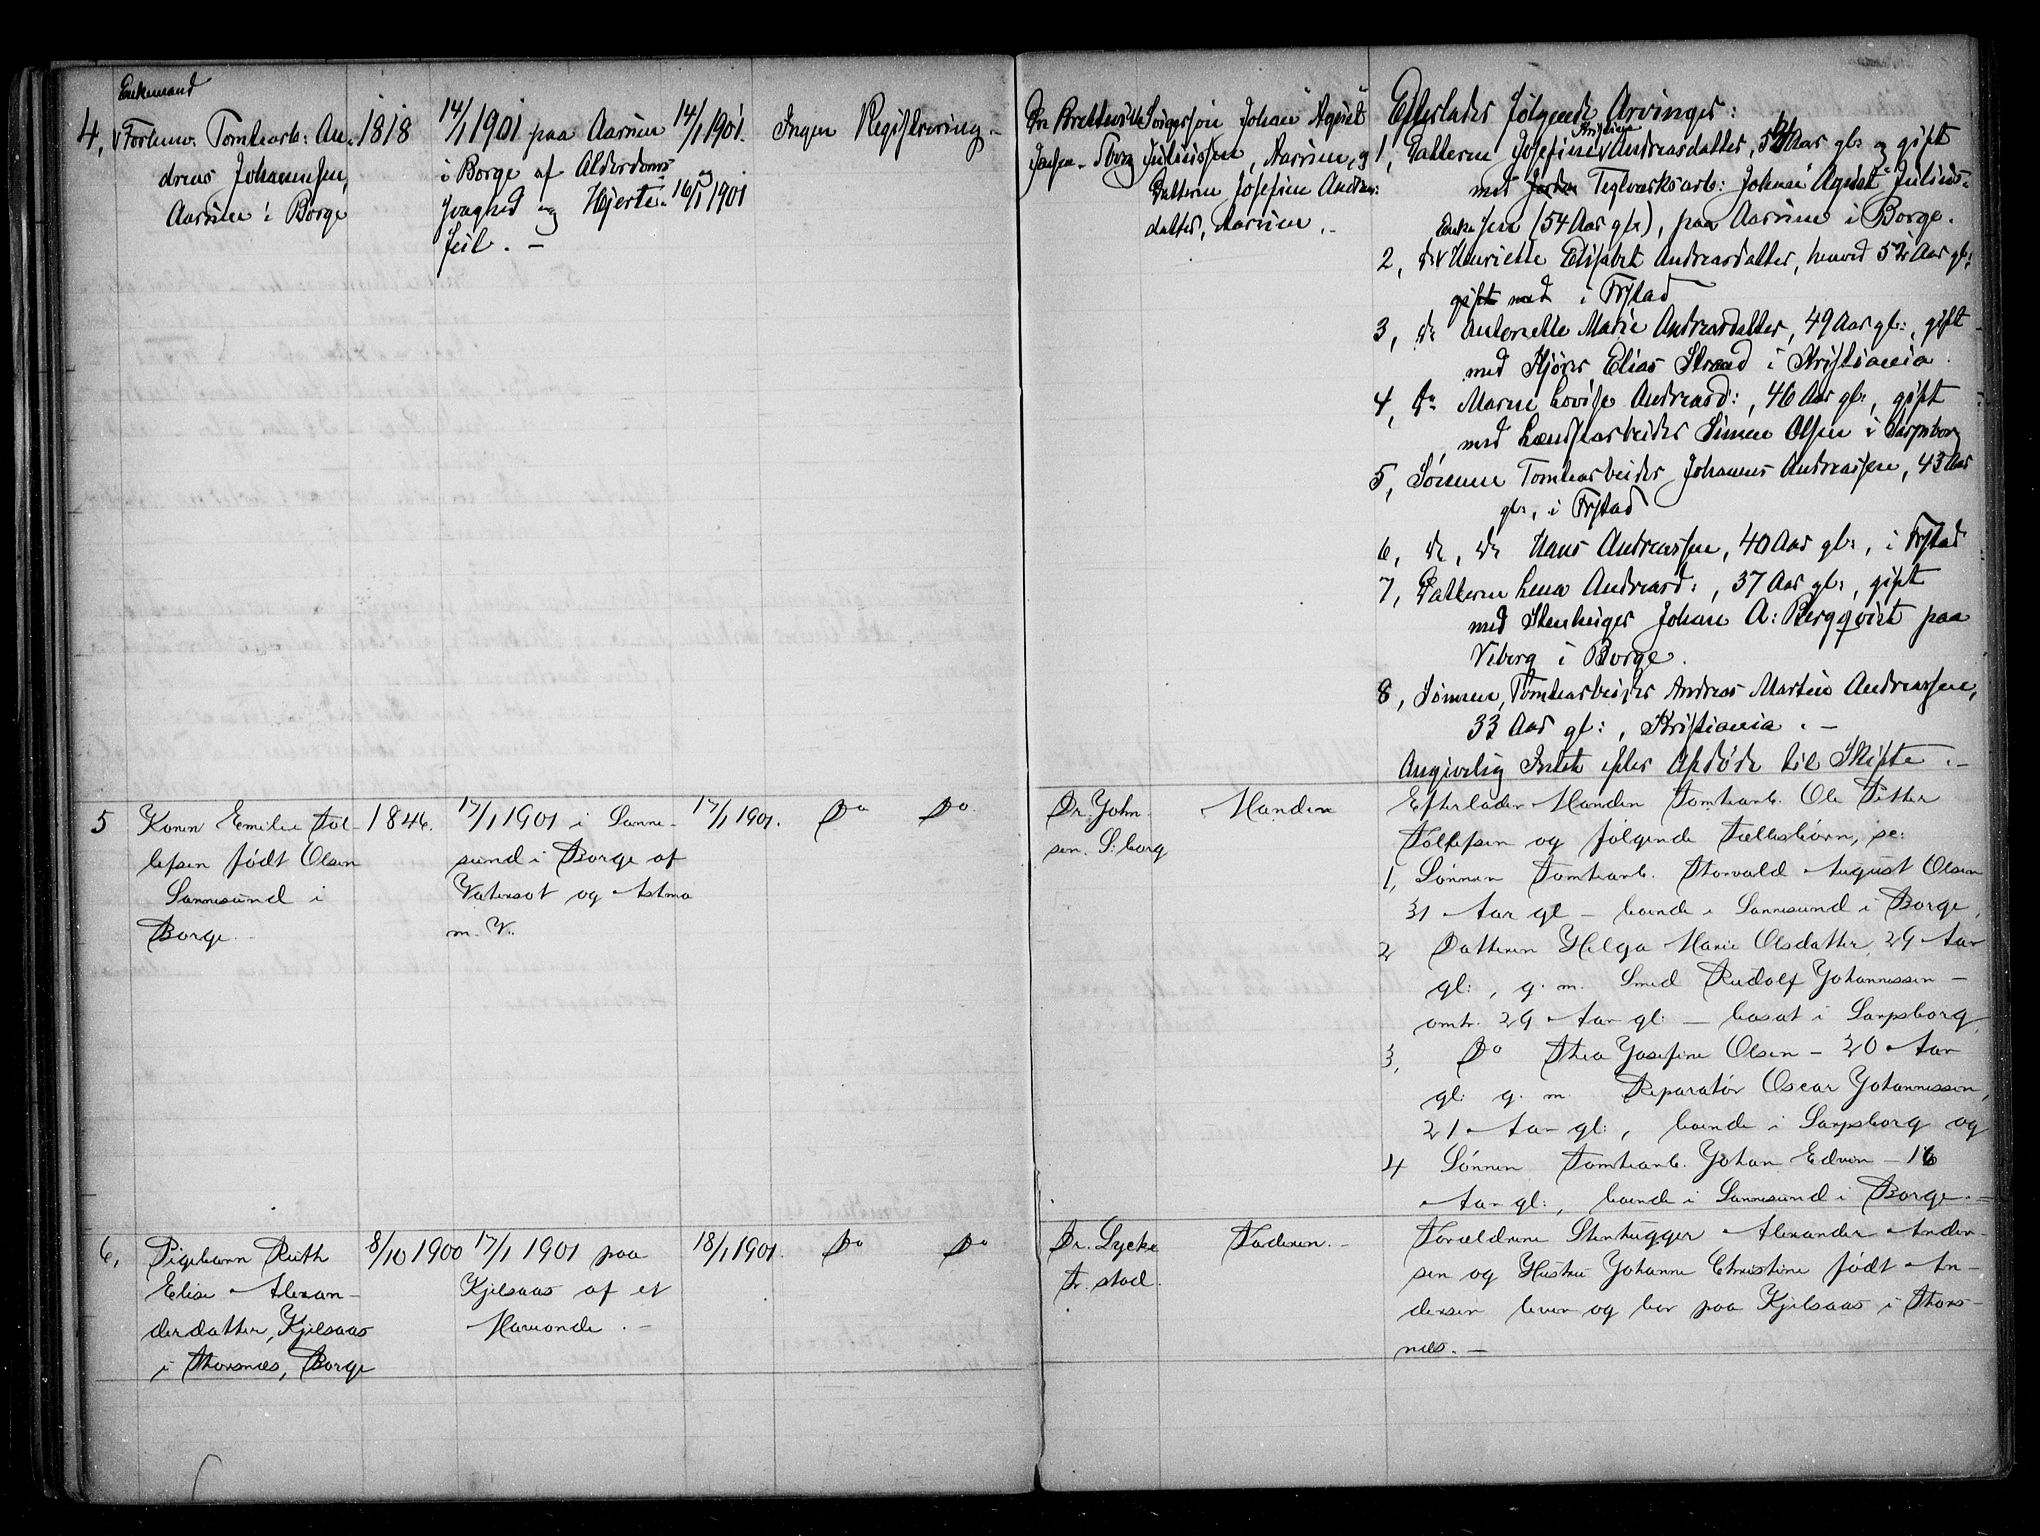 Enkemand
4, Forhenv. Tomtearb: An-
dreas Johannesen,
Aarum i Borge
1818
14/1 1901 paa Aarum
i Borge af Alderdoms-
svaghed og Hjerte-
feil. -
14/1 1901.
og
16/1 1901
Ingen Registrering. -
Dr Brettville
Jensen - Sborg
Svigersøn Johan Agust
Juliussen, Aarum, og
Datteren Josefine Andreas-
datter, Aarum. -
Efterlader følgende Arvinger:
1, Datteren Josefine Kristiane Andreasdatter, Aar gl: og gift
med Teglværksarb: Johan Agust Julius-
sen (54 Aar gl:), paa Aarum i Borge.
Enke
2, do Henriette Elisabet Andreasdatter, henved 52 Aar gl:,
gift med i Frstad
3, do Antonette Marie Andreasdatter, 49 Aar gl:, gift
med Kjører Elias Strand i Kristiania
4, do Maren Lovise Andreasd:, 46 Aar gl:, gift
med Landarbeider Simen Olsen i Sarpsborg
5, Sønnen Tomtearbeider Johannes Andreassen, 43 Aar
gl:, i Frstad
6, do, do Hans Andreassen, 40 Aar gl:, i Frstad
7, Datteren Lena Andreasd:, 37 Aar gl:, gift
med Stenhuger Johan A: Bergqvist paa
Viborg i Borge.
8, Sønnen, Tomtearbeider Andreas Martin Andreassen,
33 Aar gl:, Kristiania. -
Angivelig Intet efter Afdøde til Skifte. -
5 Konen Emilie Tol-
lefsen født Olsen
Sannesund i
Borge.
1846.
17/1 1901 i Sanne-
sund i Borge af
Vatersot og Astma
m. V.
17/1 1901.
Do Do
Dr. John-
sen. S:borg
Manden
Efterlader Manden Tomtearb. Ole Petter
Tollefsen og følgende Fællesbørn, se:
1, Sønnen Tomtearb. Thorvald August Olsen
31 Aar gl - boende i Sannesund i Borge,
2 Datteren Helga Marie Olsdatter, 29 Aar
gl:, g. m. Smed Rudolf Johannessen -
omtr. 29 Aar gl: - bosat i Sarpsborg,
3, Do Thea Josefine Olsen - 20 Aar
gl: g. m. Reparatør Oscar Johannessen,
21 Aar gl:, boende i Sarpsborg og
4 Sønnen Tomtearb. Johan Edvin - 16
Aar gl:, boende i Sannesund i Borge. -
6, Pigebarn Ruth
Elise Alexan-
derdatter, Kjelsaas
i Thorsnæs, Borge
8/10 1900
17/1 1901 paa
Kjelsaas af et
Maveonde. -
18/1 1901.
Do Do
Dr. Lycke
Fr.stad.
Faderen. -
Forældrene Stenhugger Alexander Ander-
sen og Hustru Johanne Christine født An-
dersen lever og bor paa Kjelsaas i Thors-
næs. -